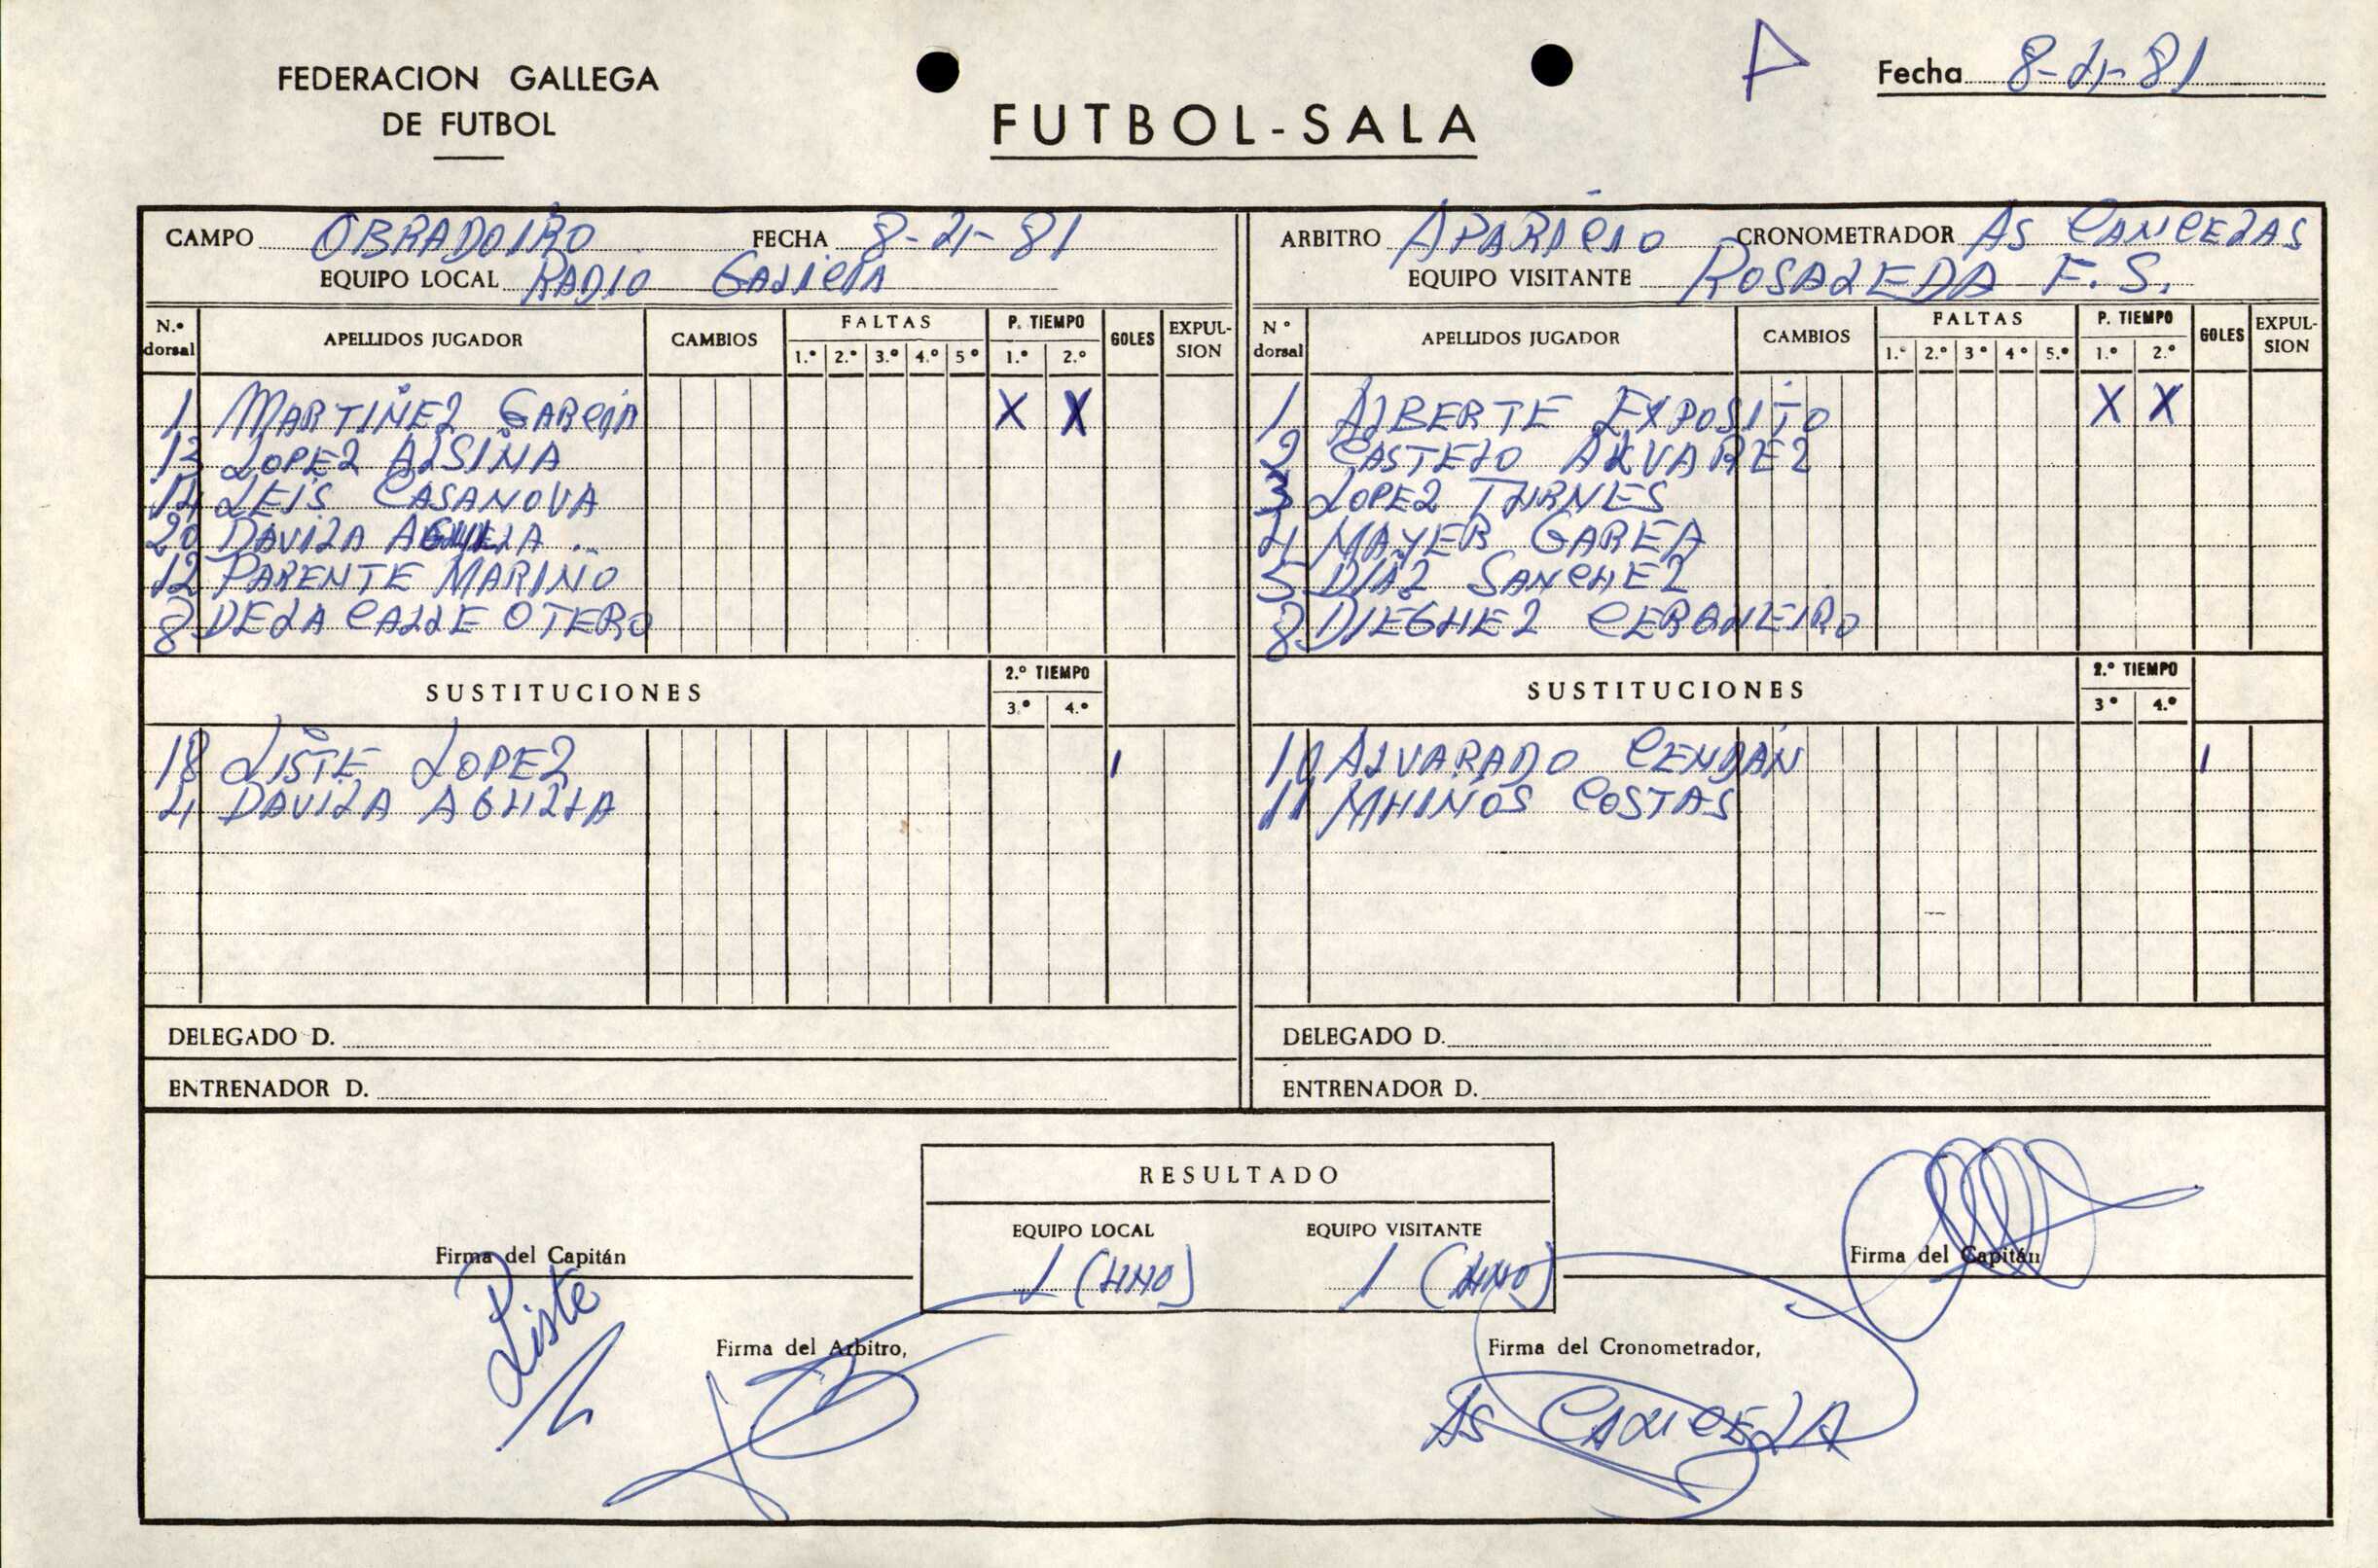 FEDERACION GALLEGA
DE FUTBOL
FUTBOL-SALA
A
Fecha 8-21-81
CAMPO OBRADOIRO FECHA 8-21-81
EQUIPO LOCAL RADIO GALICIA
ARBITRO APARICIO CRONOMETRADOR AS CANCELAS
EQUIPO VISITANTE ROSALEDA F.S.
N.º dorsal APELLIDOS JUGADOR CAMBIOS FALTAS 1.º 2.º 3.º 4.º 5º P. TIEMPO 1.º 2.º GOLES EXPULSION
1 MARTINEZ GARCIA X X
13 LOPEZ ALSINA
14 LEIS CASANOVA
20 DAVILA
12 PARENTE MARINO
8 DE LA CALLE OTERO
SUSTITUCIONES 2.º TIEMPO 3.º 4.º
18 LISTE LOPEZ 1
DAVILA AGUILLA
DELEGADO D.
ENTRENADOR D.
Nº dorsal APELLIDOS JUGADOR CAMBIOS FALTAS 1.º 2.º 3º 4º 5.º P. TIEMPO 1.º 2.º GOLES EXPULSION
1 ALBERTE EXPOSITO X X
2 CASTELO ALVAREZ
3 LOPEZ TURNES
4 MAYER GAREA
5 DIAZ SANCHEZ
8 DIEGUEZ CERQUEIRO
SUSTITUCIONES 2.º TIEMPO 3º 4.º
10 ALVARADO CENDAN 1
11 MUINOS COSTAS
DELEGADO D.
ENTRENADOR D.
RESULTADO
EQUIPO LOCAL EQUIPO VISITANTE
1 (UNO) 1 (UNO)
Firma del Capitán
Liste
Firma del Capitán
Firma del Arbitro,
Firma del Cronometrador,
AS CANCELA